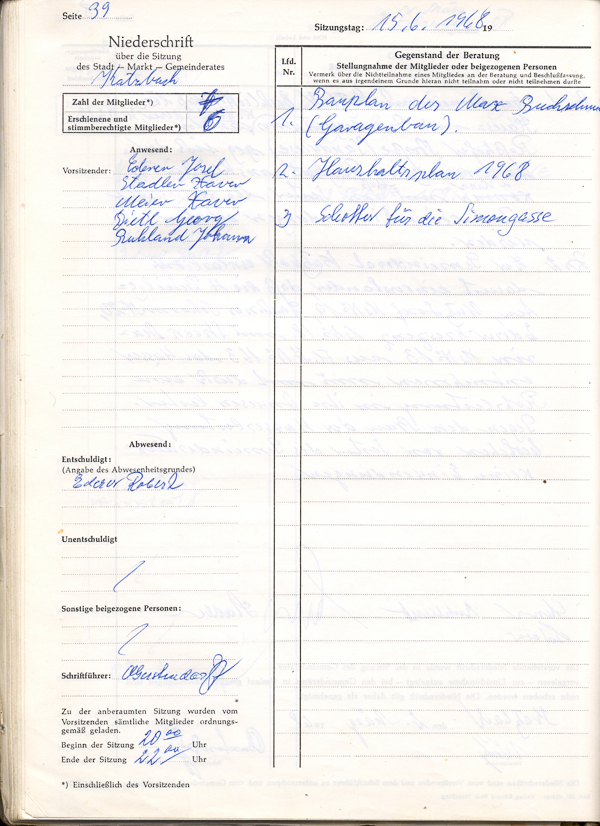 Seite 39
Sitzungstag: 15.6.1968 19
Niederschrift
über die Sitzung
des Stadt – Markt – Gemeinderates
Katzbach
Zahl der Mitglieder*) 7
Erschienene und
stimmberechtigte Mitglieder*) 6
Anwesend:
Vorsitzender: Ederer Josef
Stadler Xaver
Meier Xaver
Dietl Georg
Ruhland Johann
Abwesend:
Entschuldigt:
(Angabe des Abwesenheitsgrundes)
Ederer Robert
Unentschuldigt
Sonstige beigezogene Personen:
Schriftführer:
Zu der anberaumten Sitzung wurden vom
Vorsitzenden sämtliche Mitglieder ordnungs-
gemäß geladen.
Beginn der Sitzung 20 00 Uhr
Ende der Sitzung 22 00 Uhr
*) Einschließlich des Vorsitzenden
Lfd.
Nr.
Gegenstand der Beratung
Stellungnahme der Mitglieder oder beigezogenen Personen
Vermerk über die Nichtteilnahme eines Mitgliedes an der Beratung und Beschlußfassung,
wenn es aus irgendeinem Grunde hieran nicht teilnahm oder nicht teilnehmen durfte
1. Bauplan des Max
(Garagenbau).
2. Haushaltsplan 1968
3 Schotter für die Simongasse